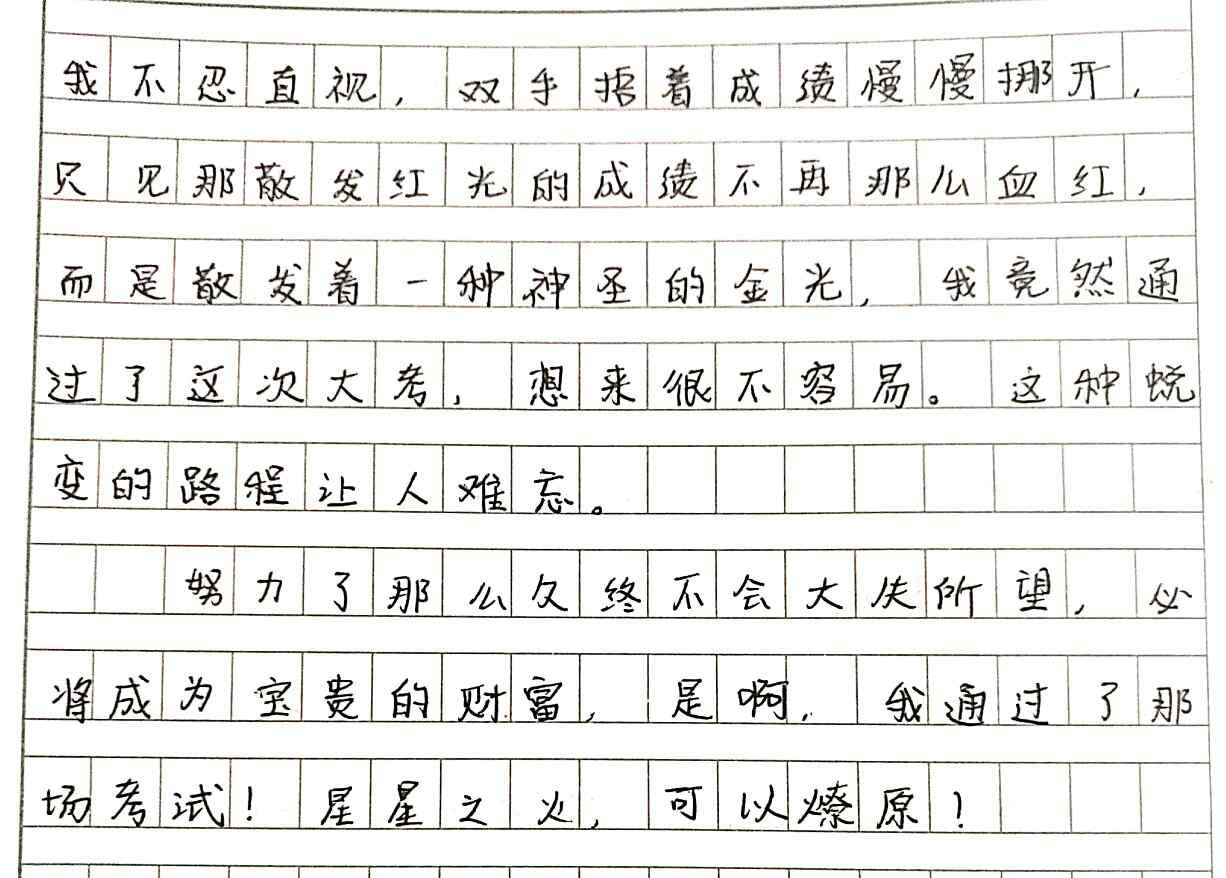 我不忍直视，双手捂着成绩慢慢挪开，
只见那散发红光的成绩不再那么血红，
而是散发着一种神圣的金光，我竟然通
过了这次大考，想来很不容易。这种蜕
变的路程让人难忘。
努力了那么久终不会大失所望，必
将成为宝贵的财富，是啊，我通过了那
场考试！星星之火，可以燎原！